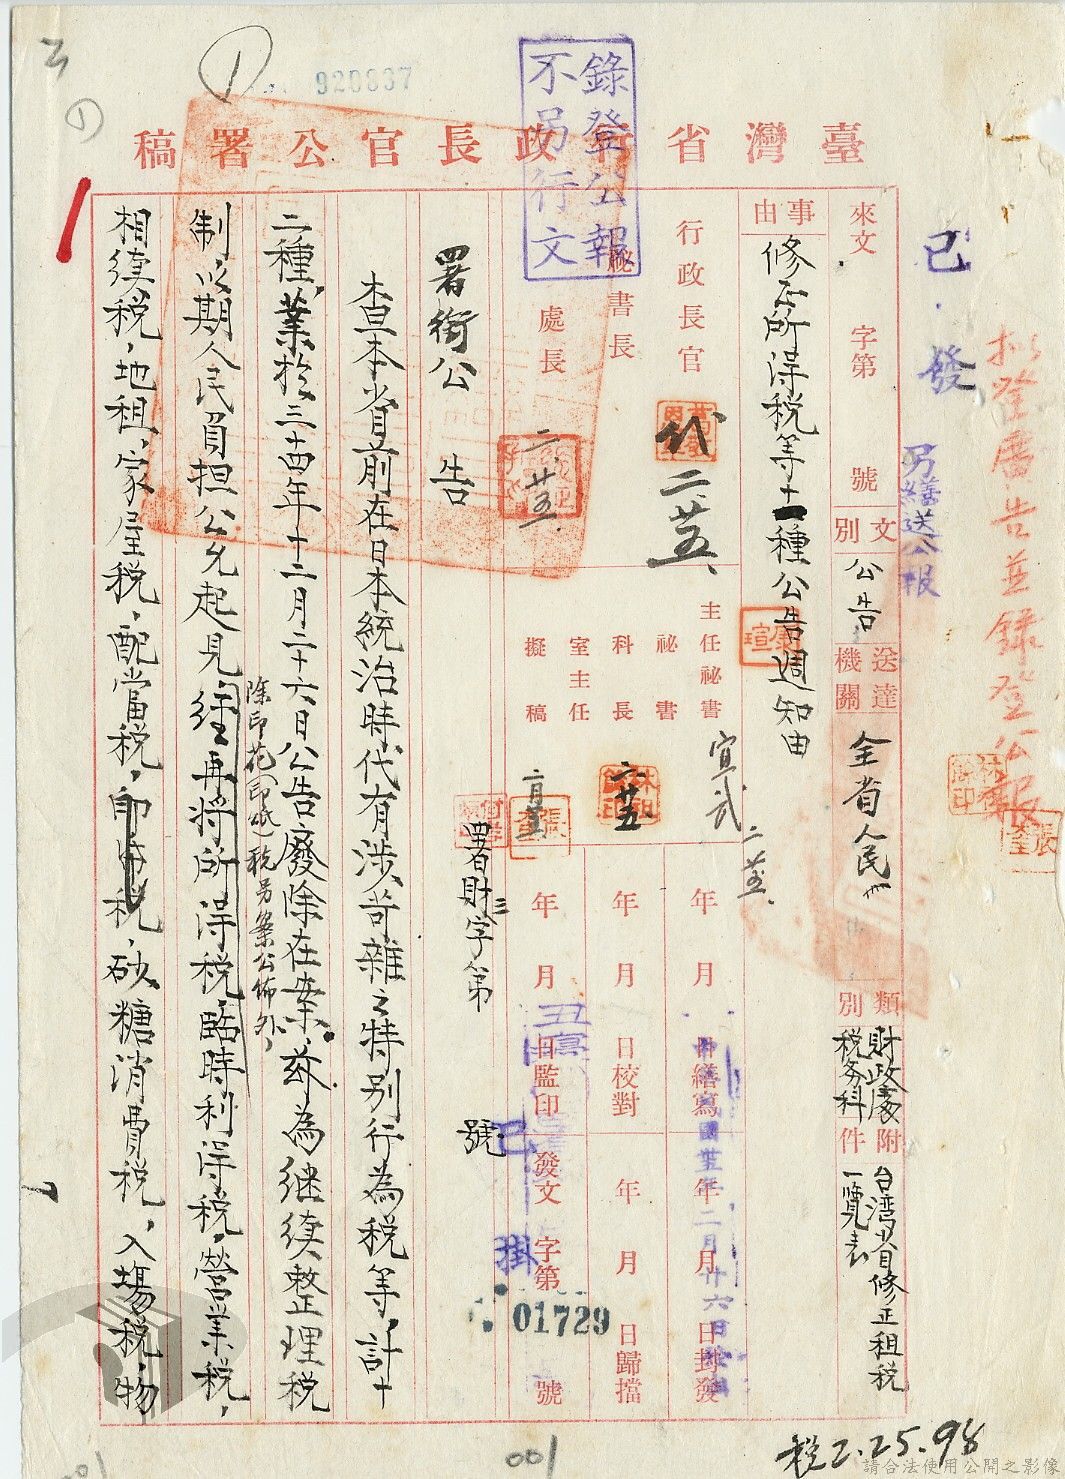 920837
臺灣省行政長官公署稿
錄登公報
不另行文
已發
另繕送公報
擬登廣告並錄登公報
來文 字第 號
文別 公告
送達機關 全省人民
類別 財政處稅務科
附件 台湾省修正租稅一覽表
事由 修正所得税等十一種公告週知由
行政長官 代 二、廿五、
秘書長
處長 二、廿五.
主任秘書 宣武 二、廿五.
秘書
科長 二、廿五
室主任
擬稿 二月廿五
年 月 日繕寫 年 月 日封發
年 月 日校對 年 月 日歸檔
年 月 日監印 發文 字第 號
國卅五年二月廿六日
已掛
01729
署銜公告 署財三字第 號
查本省前在日本統治時代有涉苛雜之特別行為税等,計十
二種,業於三十四年十二月二十六日公告廢除在案.茲為继續整理税
除印花(印紙)税另案公佈外,
制,以期人民負担公允起見,經再將所得税,臨時利得税,營業税,
相續税,地租,家屋税,配當税,印紙税,砂糖消費税,入場税,物
001
税2.25.98
請合法使用公開之影像